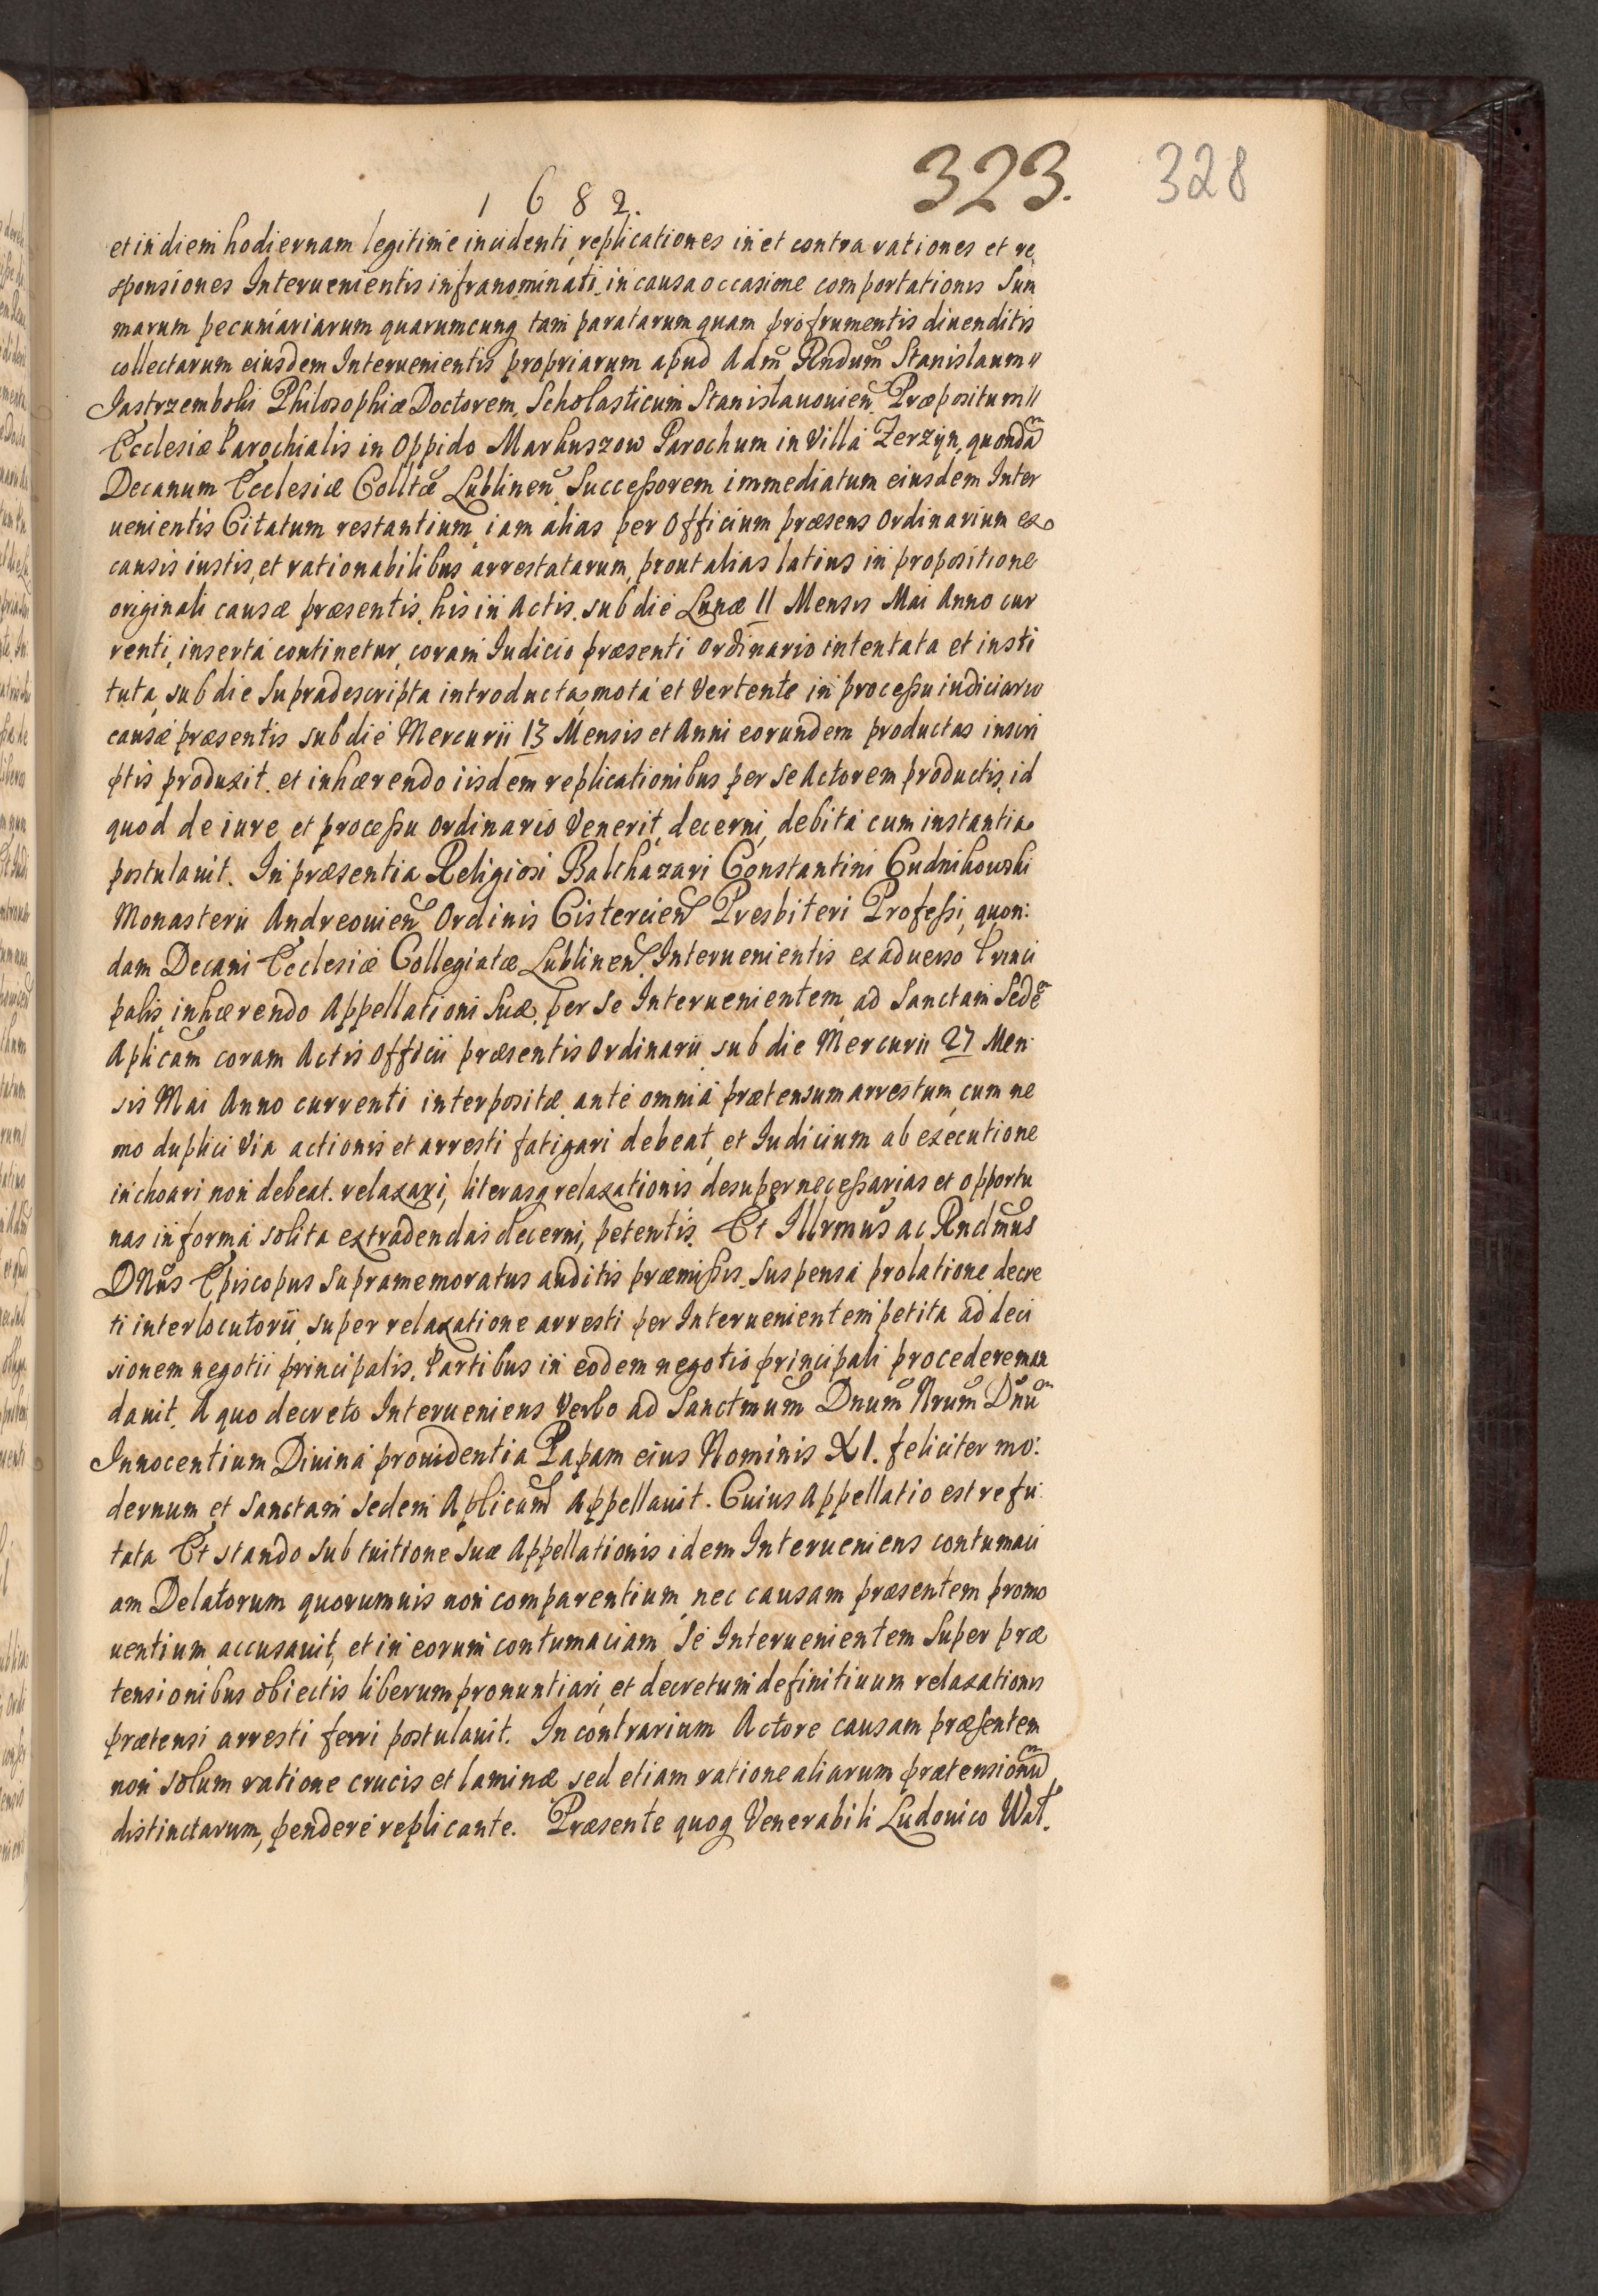 1682.
323.
328
et in diem hodiernam legitime incidenti, replicationes in et contra rationes et re
sponsiones Interuenientis infranominati in causa occasione comportationis Sum
marum pecuniariarum quarumcunq tam paratarum quam pro frumentis diuenditis
collectarum eiusdem Interuenientis propriarum apud Adm̃ Rndum̃ Stanislaum
Jastrzembski Philosophiæ Doctorem, Scholasticum Stanislauouien̄ Præpositum
Ecclesiæ Parochialis in Oppido Markuszow Parochum in Villa Zerzyn, quondã
Decanum Ecclesiæ Colltæ Lublinen̄ Successorem immediatum eiusdem Inter
uenientis Citatum restantium, iam alias per Officium præsens Ordinarium ex
causis iustis, et rationabilibus arrestatarum, prout alias latius in propositione
originali causæ præsentis, his in Actis, sub die Lunæ 11 Mensis Mai Anno cur
renti, inserta continetur, coram Iudicio præsenti ordinario intentata et insti
tuta, sub die supradescripta introducta, mota et Vertente in processu iudiciario
causæ præsentis sub die Mercurii 13 Mensis et Anni eorundem productas in scri
ptis produxit. et inhærendo iisdem replicationibus per se Actorem productis, id
quod de iure et processu Ordinario Venerit, decerni, debita cum instantia
postulauit. In præsentia Religiosi Balthazari Constantini Cudnikowski
Monasterii Andreouien̄ Ordinis Cistercien̄ Presbiteri Professi, quon:
dam Decani Ecclesiæ Collegiatæ Lublinen̄. Interuenientis ex aduerso Princi
palis inhærendo Appellationi suæ, per se Interuenientem, ad Sanctam Sedẽ
Aplicam̄ coram Actis Officii præsentis Ordinarii sub die Mercurii 27 Men
sis Mai Anno currenti interpositæ ante omnia prætensum arrestum, cum ne
mo duplici Via actionis et arresti fatigari debeat, et Iudicium ab executione
inchoari non debeat. relaxari, literasq relaxationis desuper necessarias et opportu
nas in forma solita extradendas decerni, petentis. Et Illrmus̄ ac Rndmus̄
DNus̄ Episcopus supramemoratus auditis præmissis, suspensa prolatione decre
ti interlocutorii super relaxatione arresti per Interuenientem petita ad deci
sionem negotii principalis, Partibus in eodem negotio principali procedere man
dauit. A quo decreto Interueniens Verbo ad Sanctmum̄ Dnum̄ Nrum̄ Dnũ
Innocentium Diuina prouidentia Papam eius Nominis XI. feliciter mo:
dernum et Sanctam Sedem Aplicam̄ Appellauit. Cuius Appellatio est refu
tata Et stando sub tuitione suæ Appellationis idem Interueniens contumaci
am Delatorum quorumuis non comparentium, nec causam præsentem promo
uentium, accusauit, et in eorum contumaciam, se Interuenientem super præ
tensionibus obiectis liberum pronuntiari, et decretum definitiuum relaxationis
prætensi arresti ferri postulauit. In contrarium Actore causam præsentem
non solum ratione crucis et laminæ sed etiam ratione aliarum prætensionũ
distinctarum, pendere replicante. Præsente quoq Venerabili Ludouico Wat.